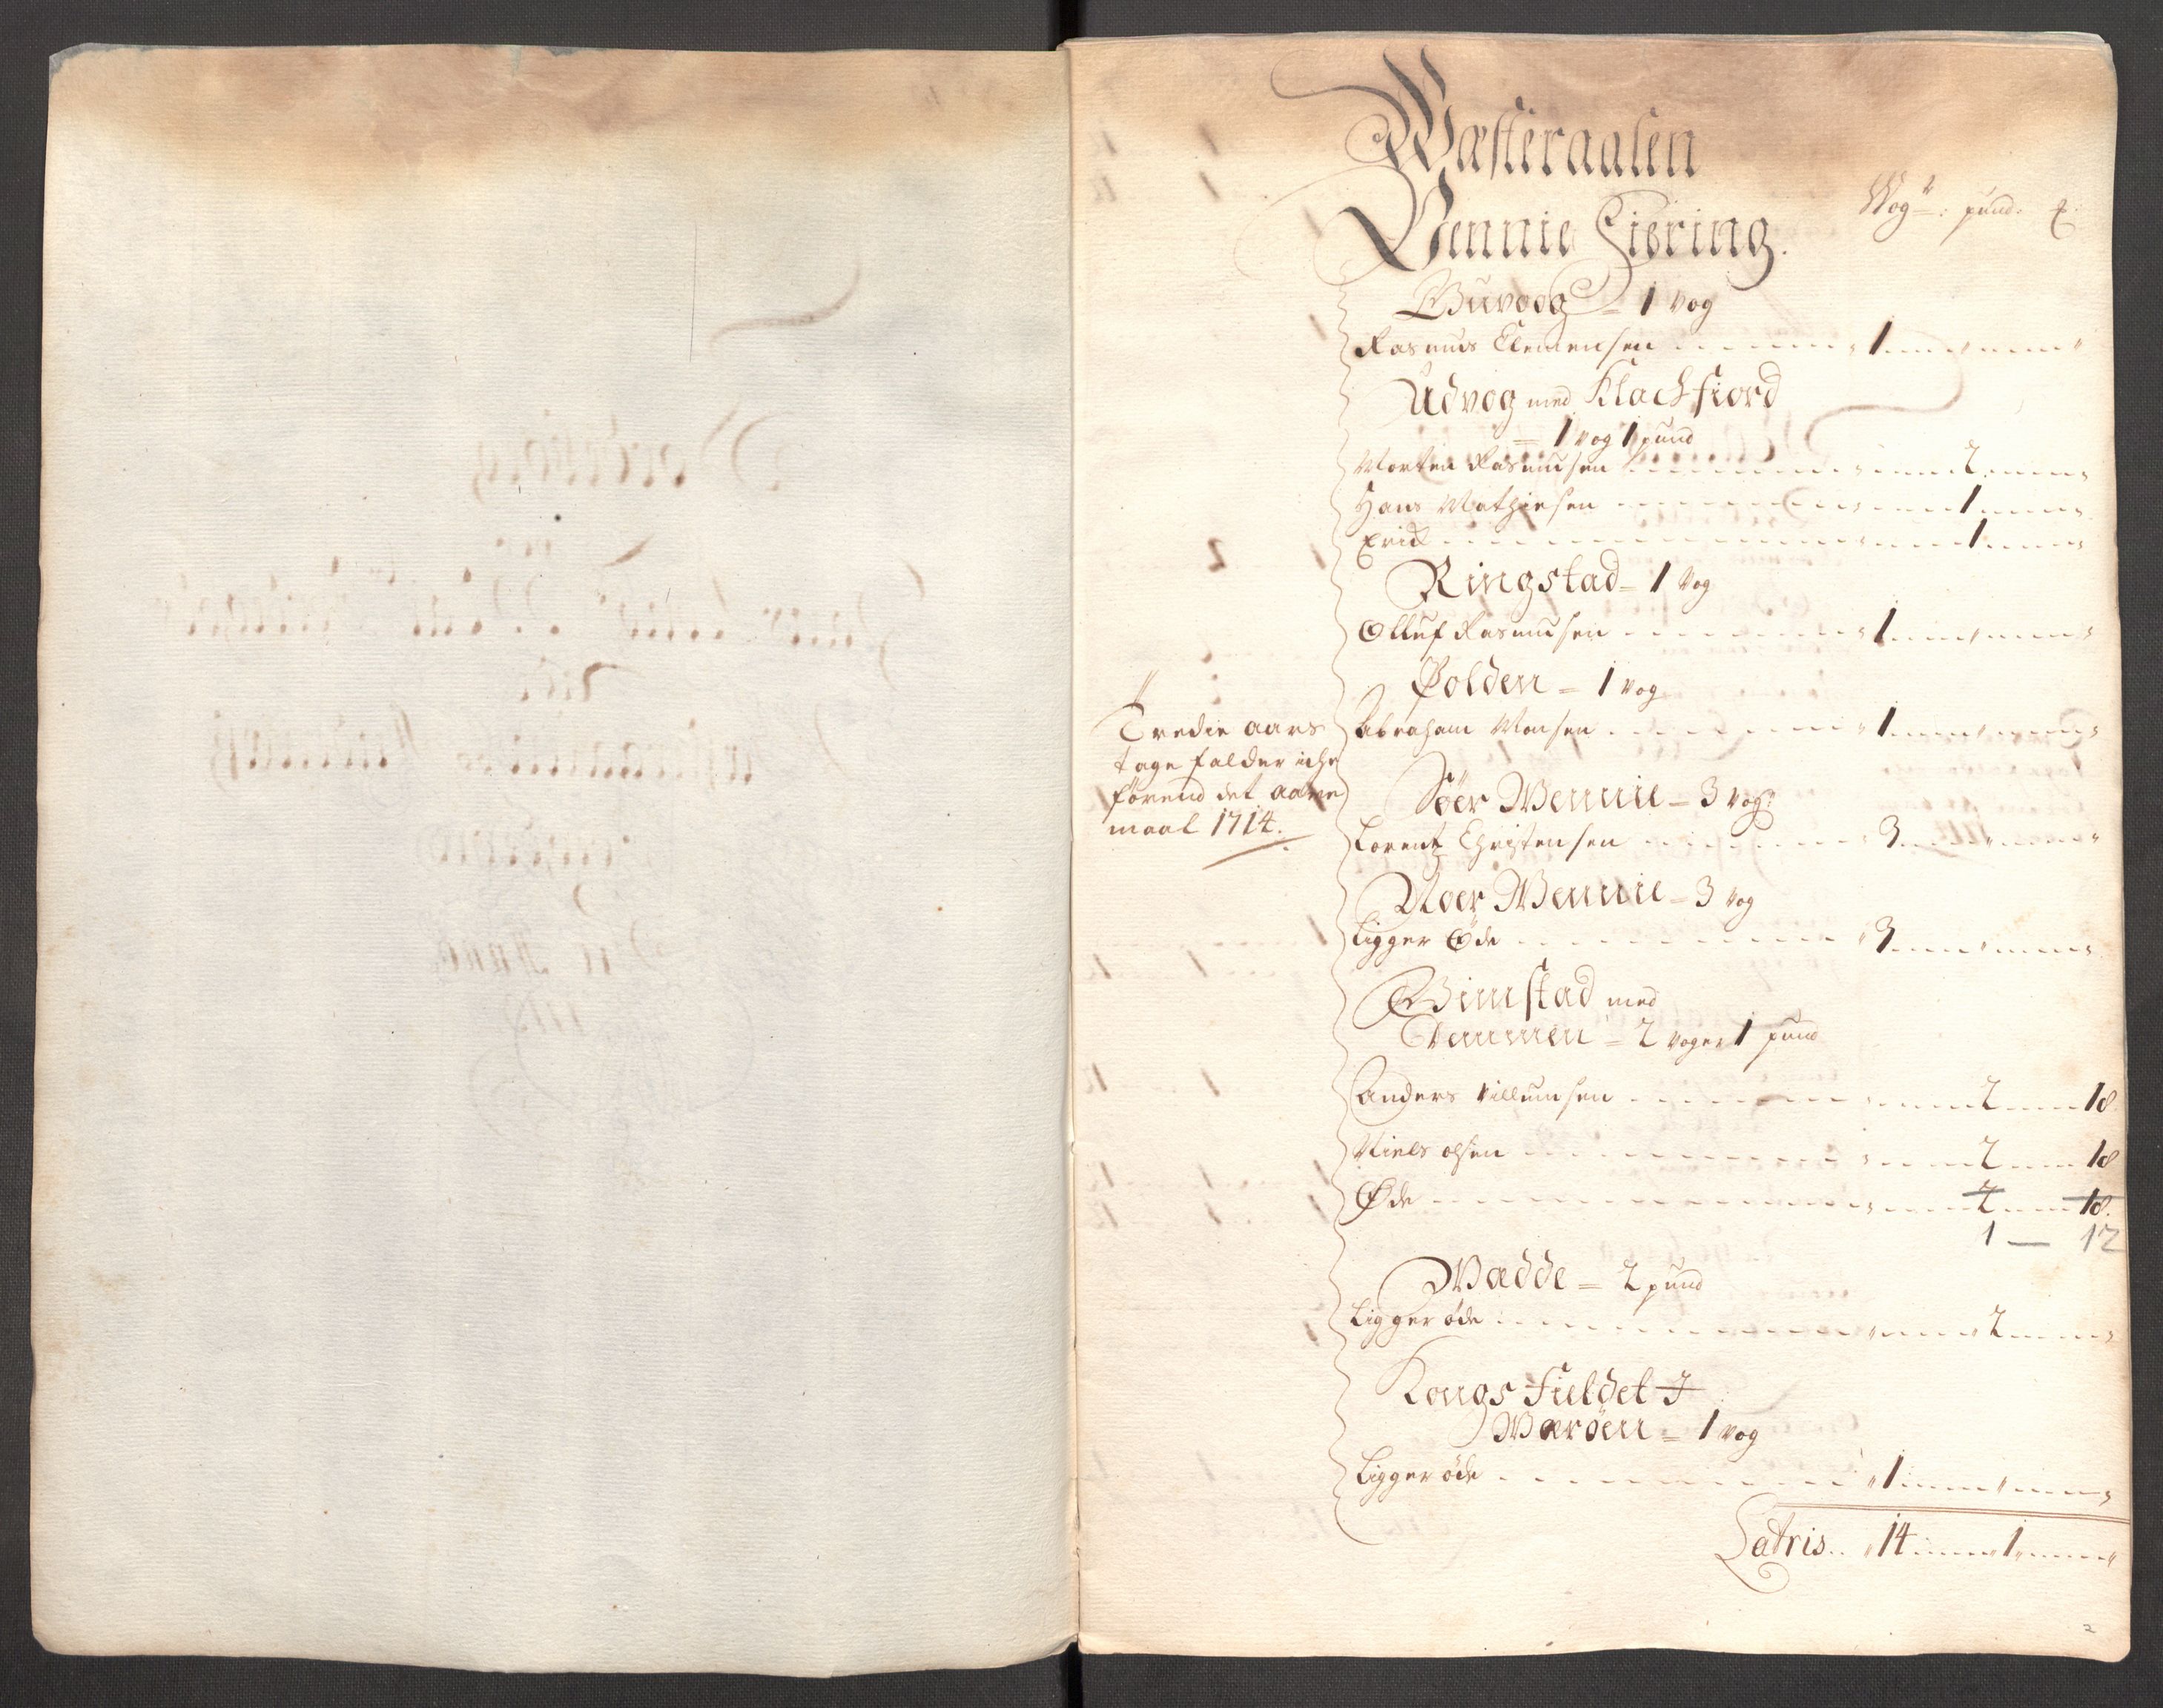 Wæsteraalen
Vennie Fiering.
Wog r: pund: ℔:
Guvoog = 1 vog
Rasmus Clemensen 1
Udvog med Klackfiord
= 1 vog 1 pund
Morten Rasmusen 2
Hans Mathiesen 1
Erick 1
Ringstad = 1 Vog
Olluf Rasmusen 1
Polden = 1 vog
Abraham Monsen 1
Tredie aars
tage falder iche
førend det aare
maal 1714.
Søer Wennie = 3 vog:
Lorentz Christensen 3
Noer Wennie = 3 vog
Ligger Øde 3
Gimstad med
Vemmen = 2 voger 1 pund
Anders Villumsen 2 18
Niels olsen 2 18
Øde 2 18.
1 — 12
Wædde = 2 pund
Ligger øde 2
Kongs Fieldet I
Wærøen = 1 vog
Ligger øde 1
Latris 14 1
2